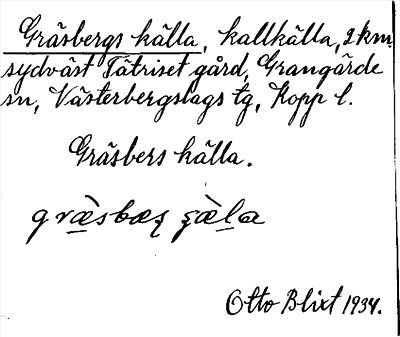 Gräsbergs källa, kallkälla, 2 km
sydväst Tätriset gård, Grangärde
sn, Västerbergslags tg, Kopp l.
Gräsbers källa.
Otto Blixt 1934.